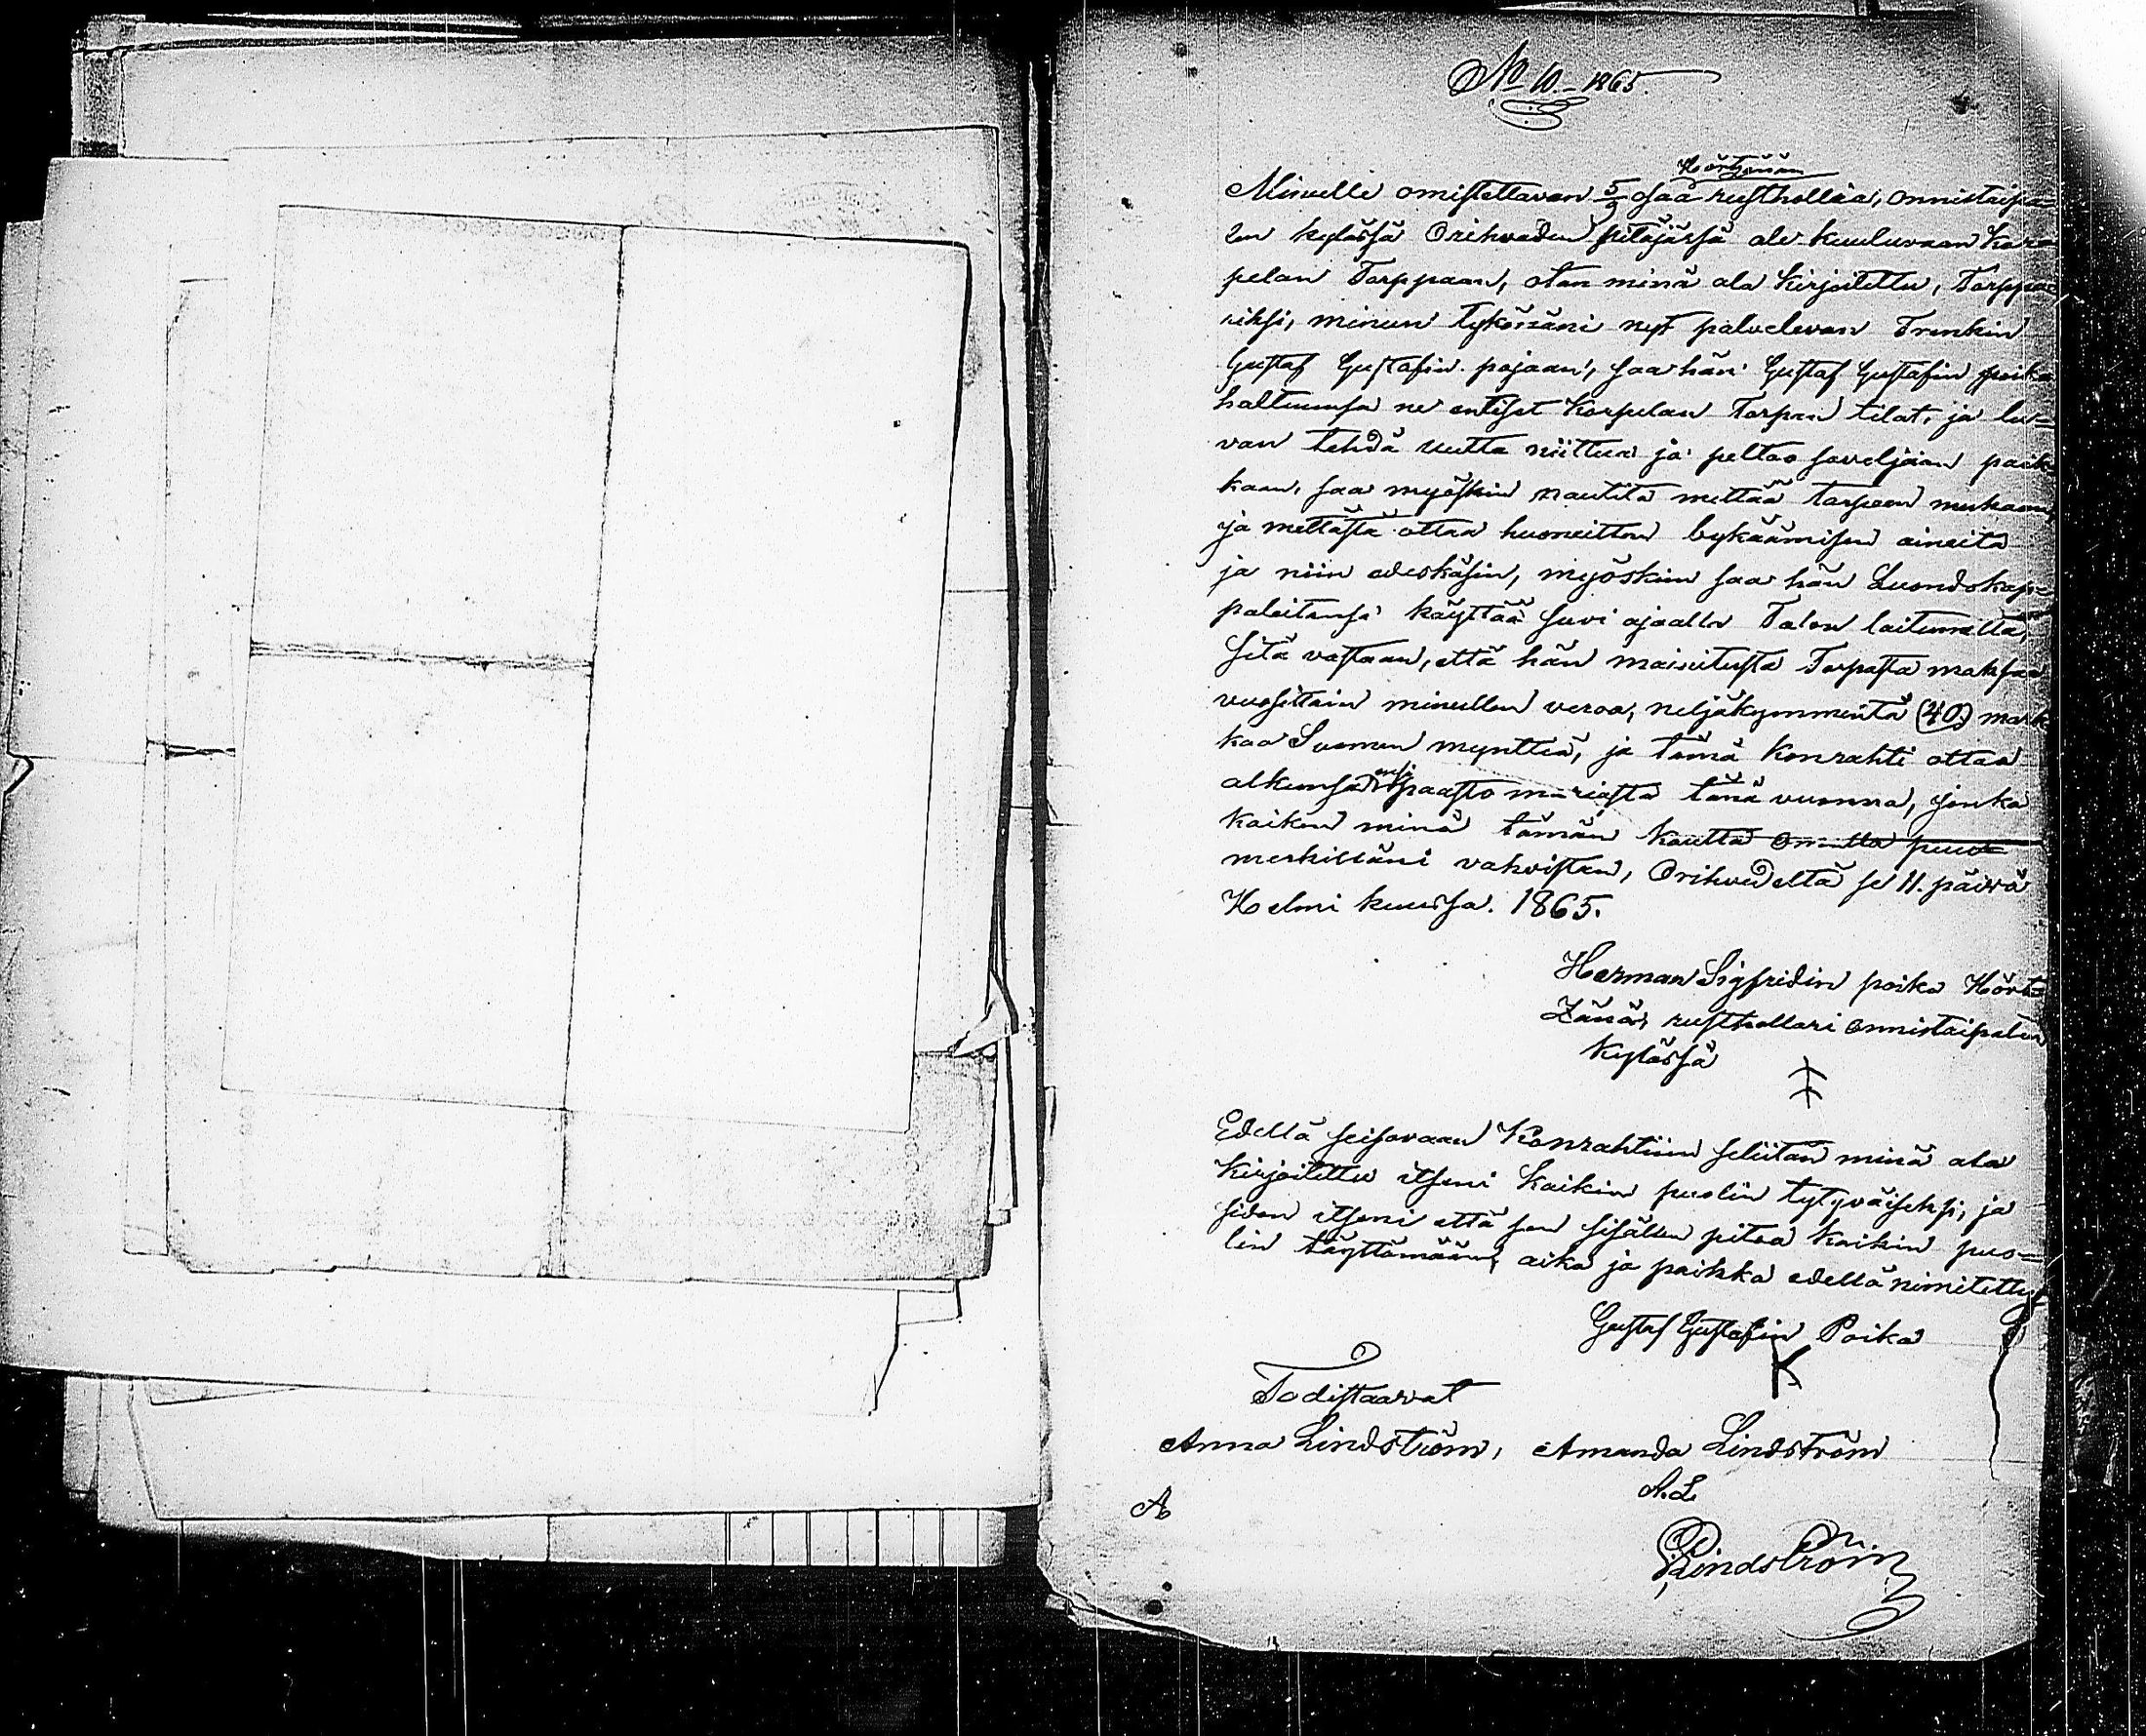 No 10. - 1865.
Hörtsänän
Minulle omistettavan 5/9 osaa rustholliia, Onnistaipa=
len kylässä Orihveden pitäjässä ale kuuluvaan Kor=
pelan Torppaan, otan minä ala kirjoitettu, Torppa=
riksi, minun tykönäni nyt palvelevan Trenkin
Gustaf Gustafin pojaan, saa hän Gustaf Gustafin poika
haltuunsa ne entiset Korpelan Torpan tilat, ja lu=
van tehdä uutta niittua ja peltoo soveljaan paik
kaan, saa myöskin nautita mettää tarpeen mukaan,
ja mettästä ottaa huoneitten bykäämisen aineita
ja niin edeskäsin, myöskin saa hän Luondokap=
paleitansa käyttää suvi ajaalla Talon laitumella,
sitä vastaan, että hän mainitusta Torpasta maksaa
vuosittain minullen veroa, neljäkymmentä (40) mark
kaa Suomen mynttiä, ja tämä Konrahti ottaa
alkunsa ensi paasto mariasta tänä vuonna, jonka
kaiken minä tämän kautta omalla puu=
merkilläni vahvistan, Orihvedeltä se 11. päivä
Helmi kuussa. 1865.
Herman Sigfridin poika Hört=
sänä, rusthollari Onnistaipalen
kylässä
Edellä seisovaan Konrahtiin seliitän minä ala
kirjoitettu itseni kaikin puolin tytyväiseksi, ja
sidon itseni että sen sisällen pitoa kaikin puo=
lin täyttämään, aika ja paikka edellä nimitetty
Gustaf Gustafin Poika
K
Todistaavat
Anna Lindström, Amanda Lindström
A.L
A
Lindström